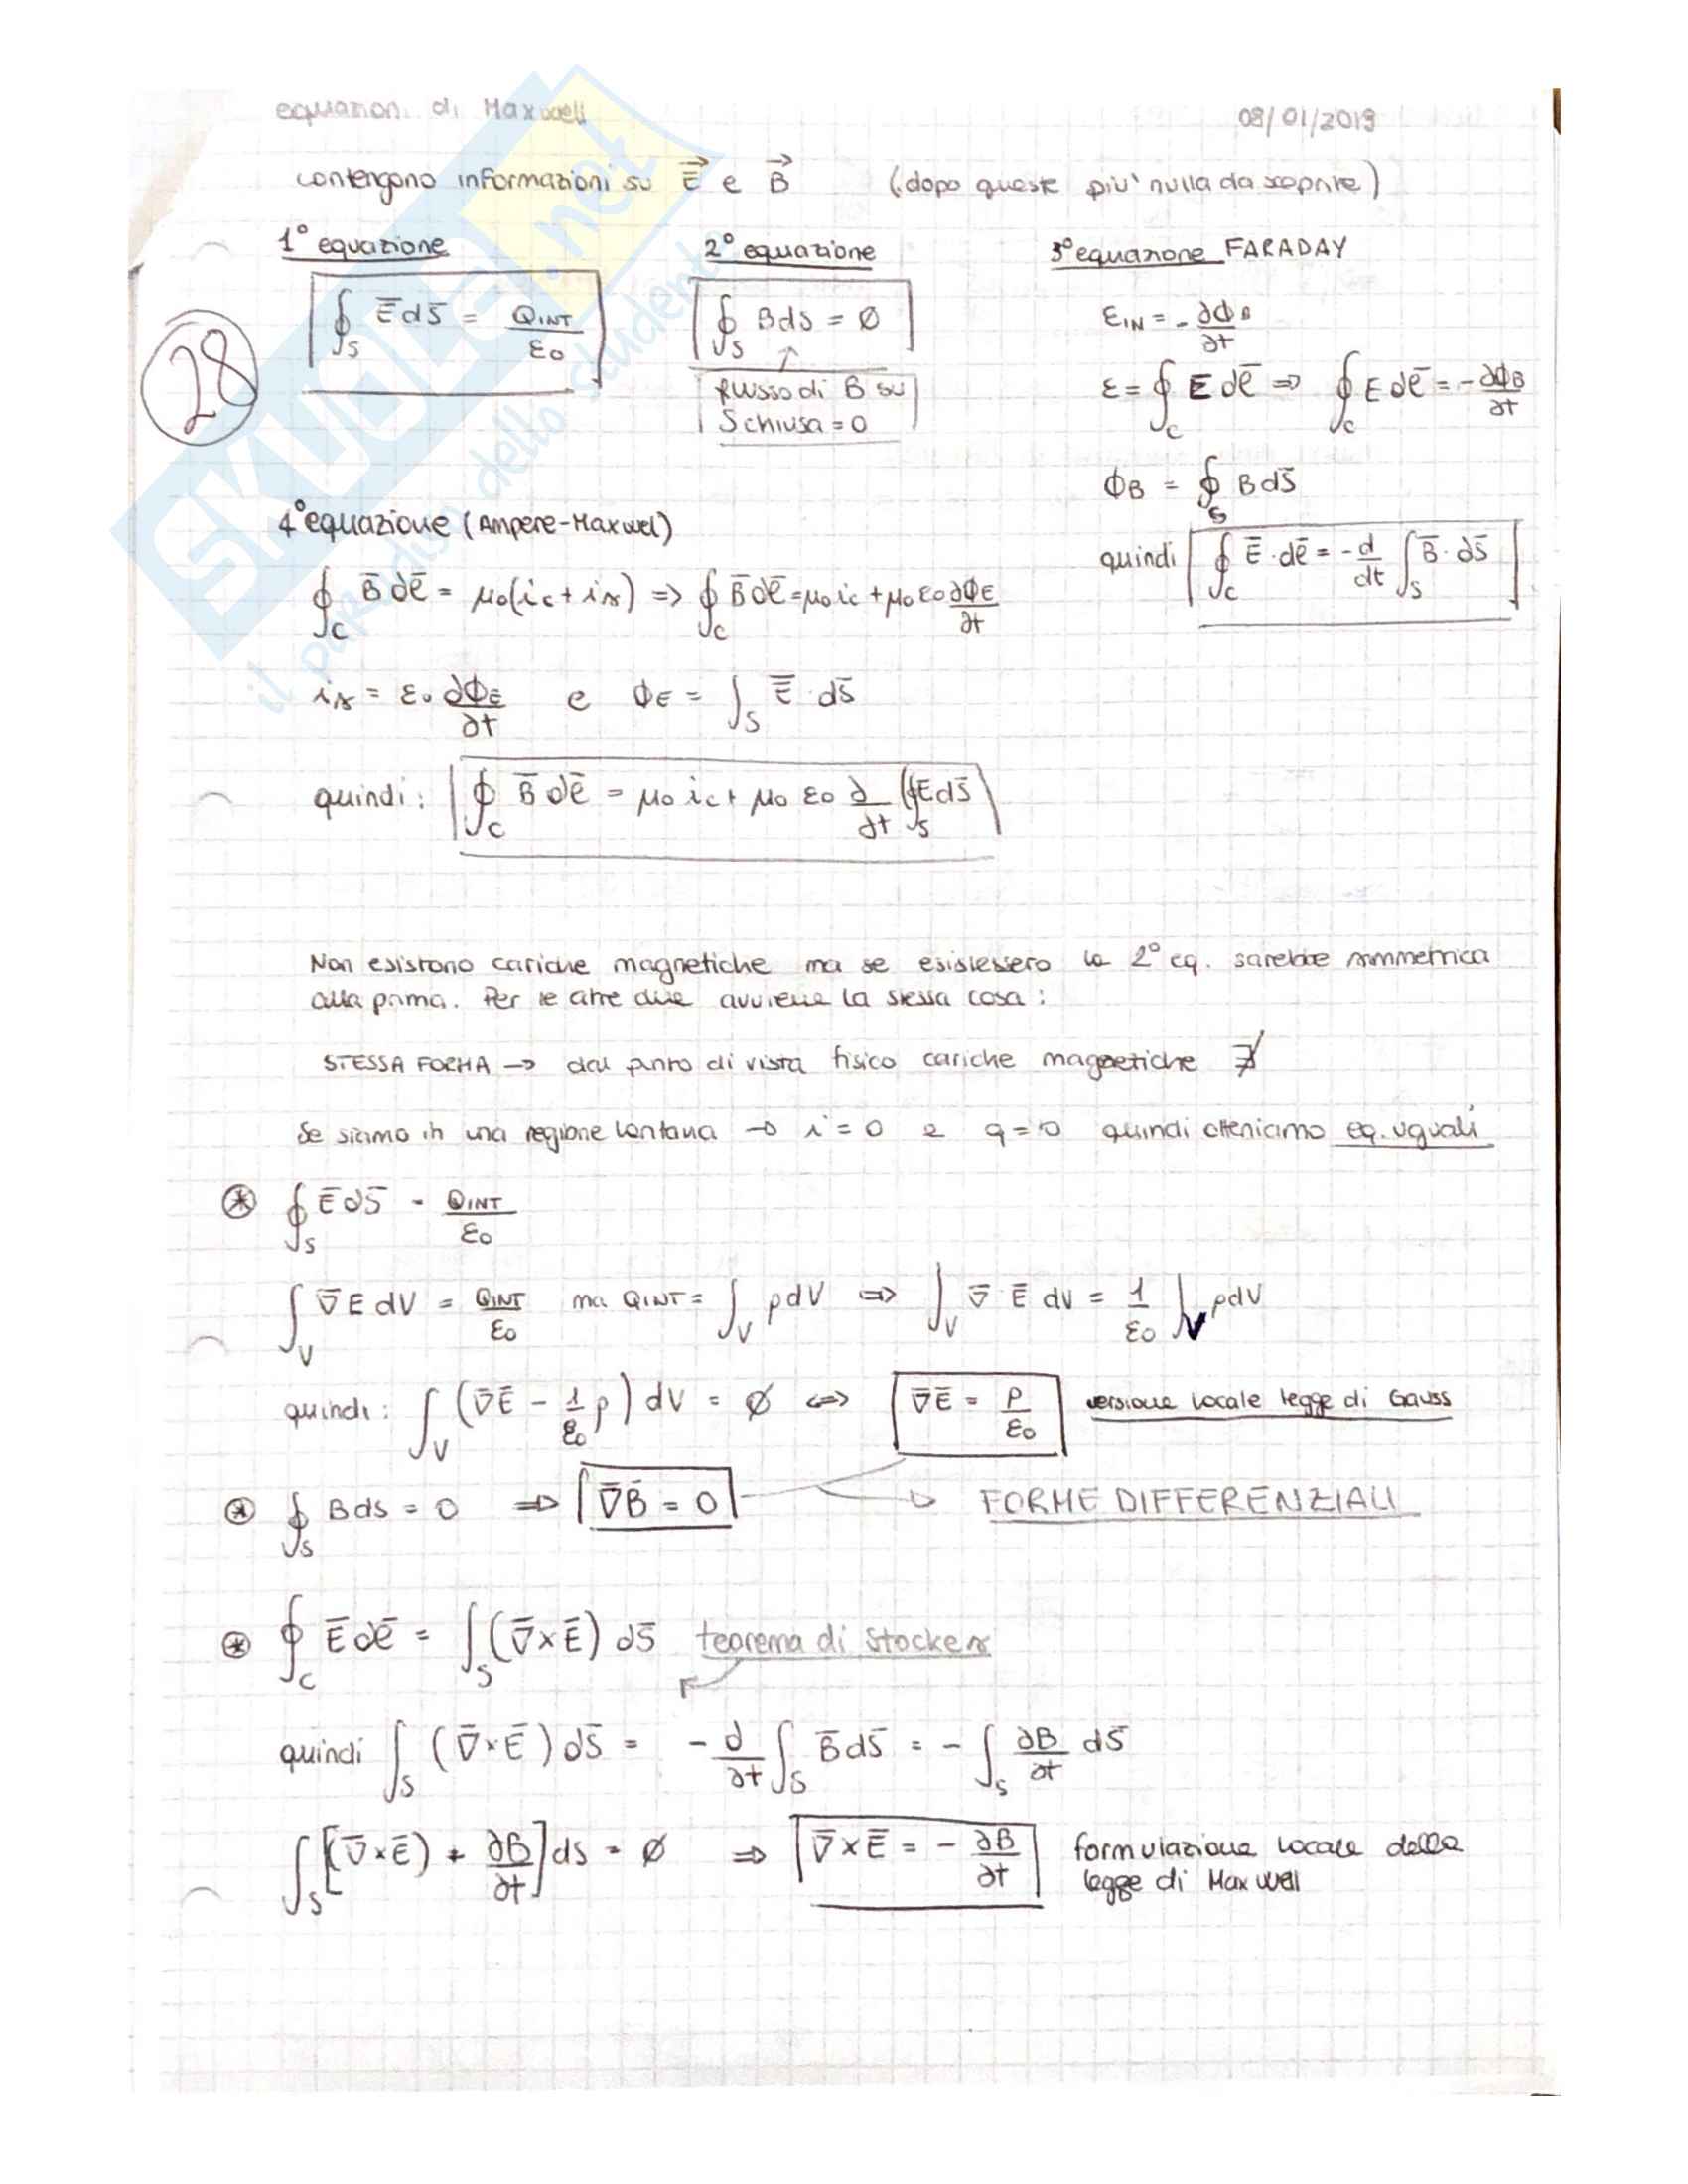 equazioni di Maxwell 08/01/2019
contengono informazioni su E⃗ e B⃗ (dopo queste piu' nulla da scoprire)
1° equazione
∮_S E̅ dS̅ = Q_INT / ε₀
28
2° equazione
∮_S B dS = ∅
flusso di B su
S chiusa = 0
3° equazione FARADAY
ε_IN = - ∂Φ_B / ∂t
ε = ∮_C E dℓ̅ ⇒ ∮_C E dℓ̅ = - ∂Φ_B / ∂t
Φ_B = ∮_S B dS̅
quindi ∮_C E̅ · dℓ̅ = - d/dt ∫_S B̅ · ∂S̅
4° equazione (Ampere-Maxwel)
∮_C B̅ dℓ̅ = μ₀(i_c + i_s) ⇒ ∮_C B̅ dℓ̅ = μ₀ i_c + μ₀ ε₀ ∂Φ_E / ∂t
i_s = ε₀ ∂Φ_E / ∂t e Φ_E = ∫_S E̅ · dS̅
quindi: ∮_C B̅ dℓ̅ = μ₀ i_c + μ₀ ε₀ ∂/∂t (∮_S E dS̅)
Non esistono cariche magnetiche ma se esistessero la 2° eq. sarebbe simmetrica
alla prima. Per le altre due avviene la stessa cosa:
STESSA FORMA → dal punto di vista fisico cariche magnetiche ∄
Se siamo in una regione lontana → i = 0 e q = 0 quindi otteniamo eq. uguali
⊛ ∮_S E̅ dS̅ = Q_INT / ε₀
∫_V ∇̅ E dV = Q_INT / ε₀ ma Q_INT = ∫_V ρ dV ⇒ ∫_V ∇̅ E̅ dV = 1/ε₀ ∫_V ρ dV
quindi: ∫_V (∇̅E̅ - 1/ε₀ ρ) dV = ∅ ⇔ ∇̅E̅ = ρ/ε₀ versione locale legge di Gauss
⊛ ∮_S B ds = 0 ⇒ ∇̅B̅ = 0 → FORME DIFFERENZIALI
⊛ ∮_C E̅ dℓ̅ = ∫_S (∇̅×E̅) dS̅ teorema di Stockes
quindi ∫_S (∇̅×E̅) dS̅ = - ∂/∂t ∫_S B̅ dS̅ = - ∫_S ∂B/∂t dS̅
∫_S [(∇̅×E̅) + ∂B/∂t] ds = ∅ ⇒ ∇̅×E̅ = - ∂B/∂t formulazione locale della
legge di Maxwell
SKUOLA.net
il paradiso dello studente